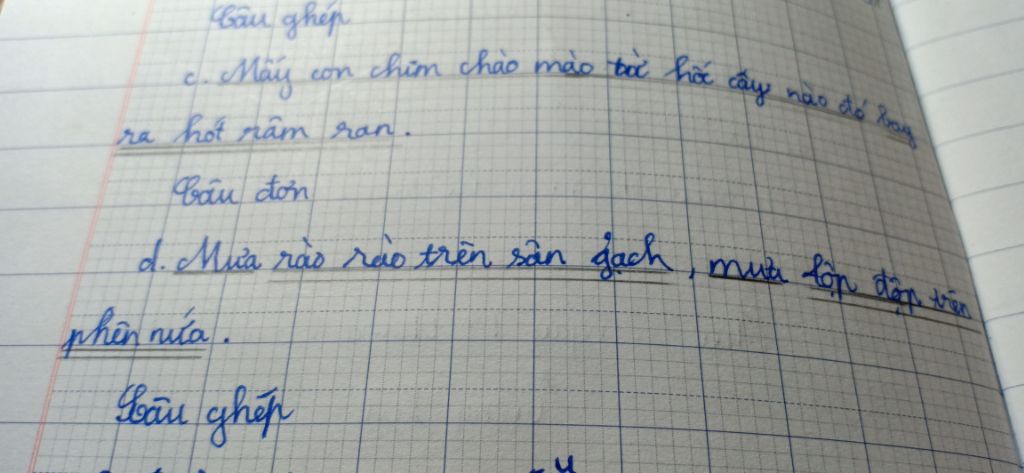 Câu ghép
c. Mấy con chim chào mào từ hốc cây nào đó bay
ra hót râm ran.
Câu đơn
d. Mưa rào rào trên sân gạch, mưa lộp độp trên
phên nứa.
Câu ghép